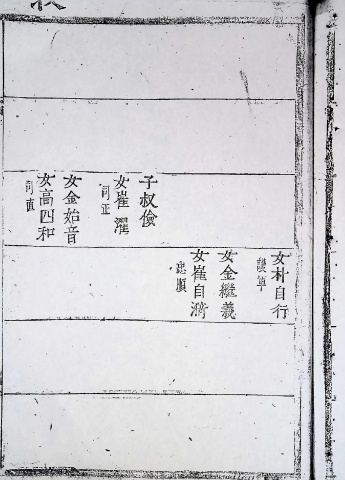 女朴自行
護軍
女金繼義
女崔自濱
忠順
子叔儉
女崔濯
司正
女金始音
女高四和
司直